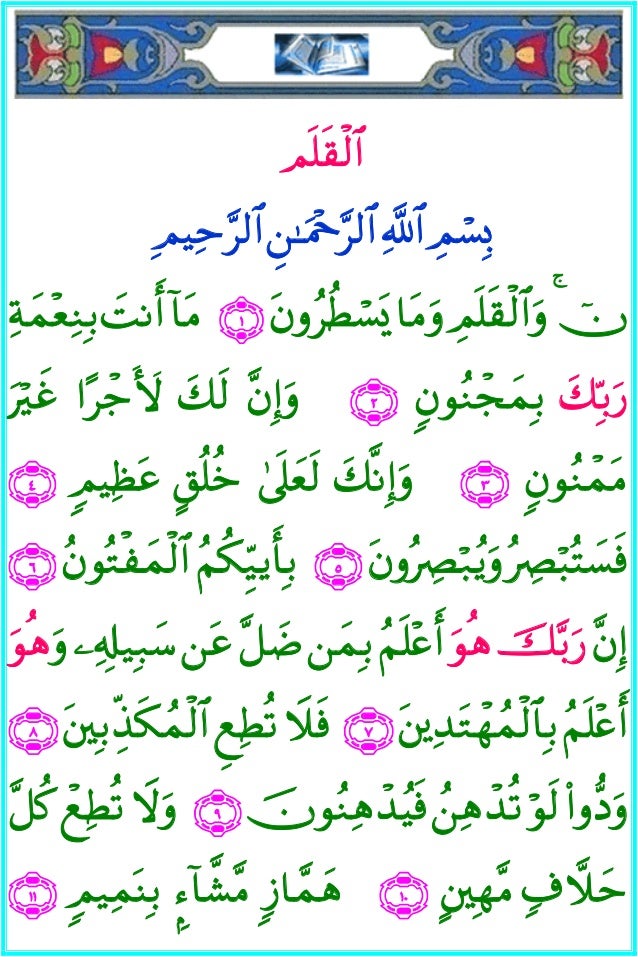 ٱلْقَلَمِ
بِسْمِ ٱللَّهِ ٱلرَّحْمَـٰنِ ٱلرَّحِيمِ
نٓ ۚ وَٱلْقَلَمِ وَمَا يَسْطُرُونَ ١ مَآ أَنتَ بِنِعْمَةِ
رَبِّكَ بِمَجْنُونٍ ٢ وَإِنَّ لَكَ لَأَجْرًا غَيْرَ
مَمْنُونٍ ٣ وَإِنَّكَ لَعَلَىٰ خُلُقٍ عَظِيمٍ ٤
فَسَتُبْصِرُ وَيُبْصِرُونَ ٥ بِأَييِّكُمُ ٱلْمَفْتُونُ ٦
إِنَّ رَبَّكَ هُوَ أَعْلَمُ بِمَن ضَلَّ عَن سَبِيلِهِۦ وَهُوَ
أَعْلَمُ بِٱلْمُهْتَدِينَ ٧ فَلَا تُطِعِ ٱلْمُكَذِّبِينَ ٨
وَدُّوا۟ لَوْ تُدْهِنُ فَيُدْهِنُونَ ٩ وَلَا تُطِعْ كُلَّ
حَلَّافٍ مَّهِينٍ ١٠ هَمَّازٍ مَّشَّآءٍ بِنَمِيمٍ ١١